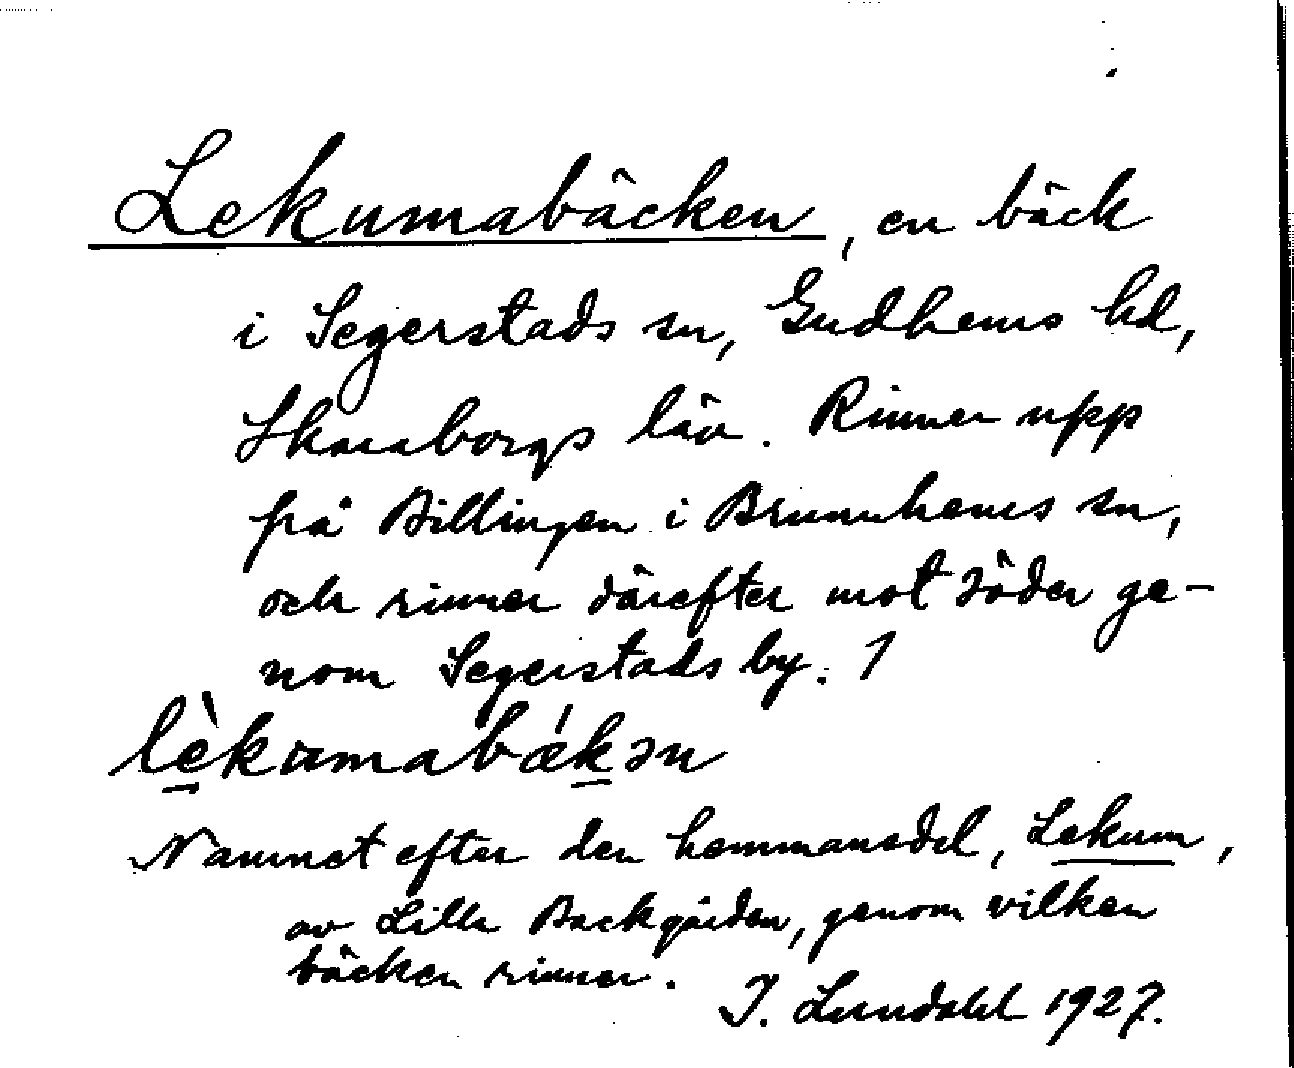 Lekumabäcken, en bäck
i Segerstads sn, Gudhems hd,
Skaraborgs län. Rinner upp
på Billingen i Brunnhems sn,
och rinner därefter mot söder ge-
nom Segerstads by. 1
lèkumabǽkən
Namnet efter den hemmansdel, Lekum,
av Lilla Backgården, genom vilken
bäcken rinner.
I. Lundahl 1927.